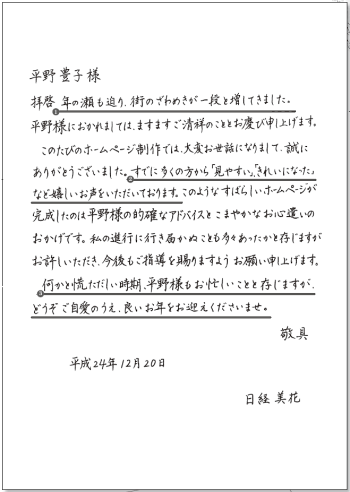 平野 豊子 様
拝啓 年の瀬も迫り、街のざわめきが一段と増してきました。
❶
平野様におかれましては、ますますご清祥のこととお慶び申し上げます。
このたびのホームページ制作では、大変お世話になりまして、誠に
ありがとうございました。すでに多くの方から「見やすい」、「きれいになった」
❷
など嬉しいお声をいただいております。このようなすばらしいホームページが
完成したのは平野様の的確なアドバイスとこまやかなお心遣いの
おかげです。私の進行に行き届かぬことも多々あったかと存じますが
お許しいただき、今後もご指導を賜りますよう お願い申し上げます。
何かと慌ただしい時期、平野様もお忙しいことと存じますが、
❸
どうぞご自愛のうえ、良いお年をお迎えくださいませ。
敬具
平成24年12月20日
日経 美花